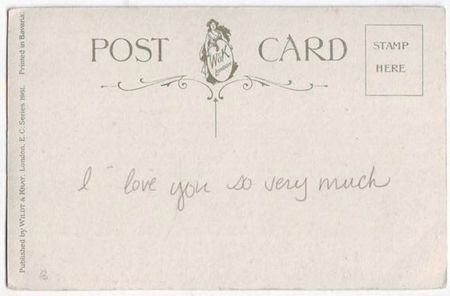 POST CARD
W&K
London
STAMP
HERE
I love you so very much
Published by WILDT & KRAY, London, E.C. Series 1951. Printed in Bavaria.